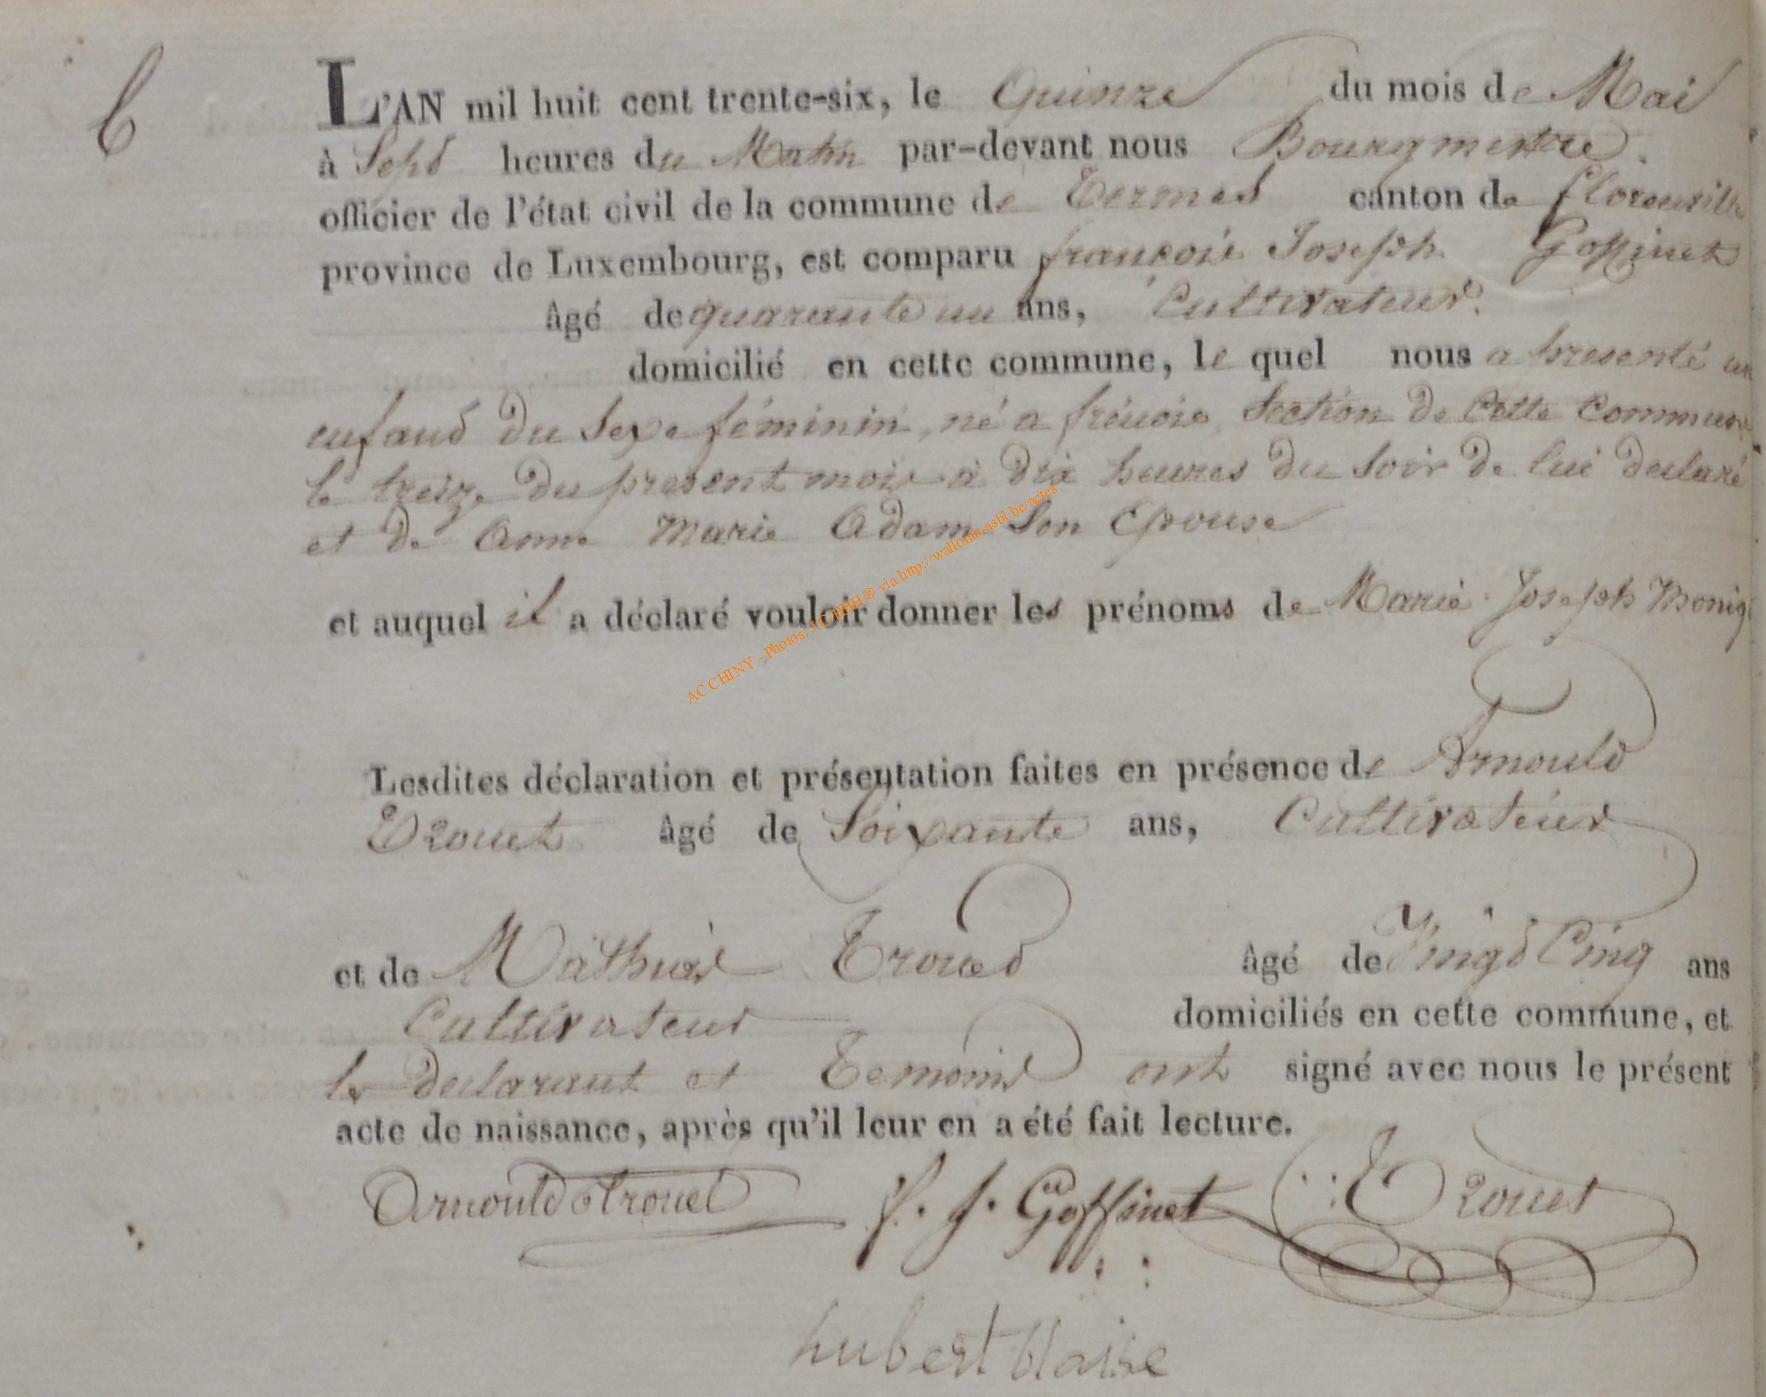 6
L'AN mil huit cent trente-six, le Quinze du mois de Mai
à Sept heures du Matin par-devant nous Bourgmestre
officier de l'état civil de la commune de Termes canton de florenville
province de Luxembourg, est comparu françois Joseph Goffinet
âgé de quarante un ans, Cultivateur.
domicilié en cette commune, le quel nous a presenté un
enfand du Sexe féminin, né a frénois, Section de Cette Commune
le treize du present mois à dix heures du Soir de lui declaré
et de Anne Marie Adam Son Epouse
et auquel il a déclaré vouloir donner les prénoms de Marie Joseph Moniq
Lesdites déclaration et présentation faites en présence de Arnould
Trouet âgé de Soixante ans, Cultivateur
et de Mathias Troued âgé de Vingd Cinq ans
Cultivateur domiciliés en cette commune, et
le declarant et Temoins ont signé avec nous le présent
acte de naissance, après qu'il leur en a été fait lecture.
Arnould trouet f. j. Goffinet Trouet
hubert blaise
AC CHINY - Photos: via http://wallonia-asbl.be/actes